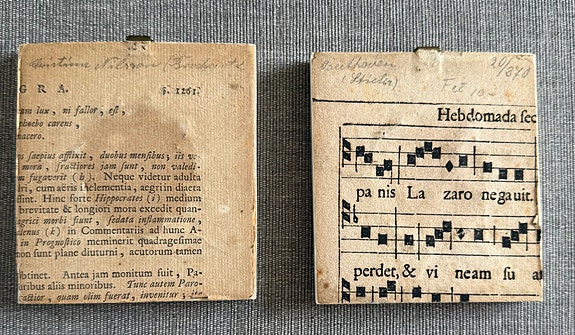 GRA. §. 1261.
um lux, ni fallor, est,
phoebo carens,
nacero.
us saepius afflixit, duobus mensibus; iis v
mora, fractiores jam sunt, non valedi-
fugaverit (h). Neque videtur adulta
dri, cum aeris inclementia, aegri in diaeta
ssint. Hinc forte Hippocrates (i) medium
brevitate & longiori mora excedit quan-
agrici morbi fiunt, sedata inflammatione,
ienus (k) in Commentariis ad hunc A-
in Prognostico meminerit quadragesimae
non sunt plane diuturni, acutorum tamen
btinet. Antea jam monitum fuit, Pa-
uribus aliis minoribus. Tunc autem Paro-
ractior, quam olim fuerat, invenitur; ita
Beethoven 20/370
(Stich)
Hebdomada sec
pa nis La zaro negauit.
perdet, & vi neam su a